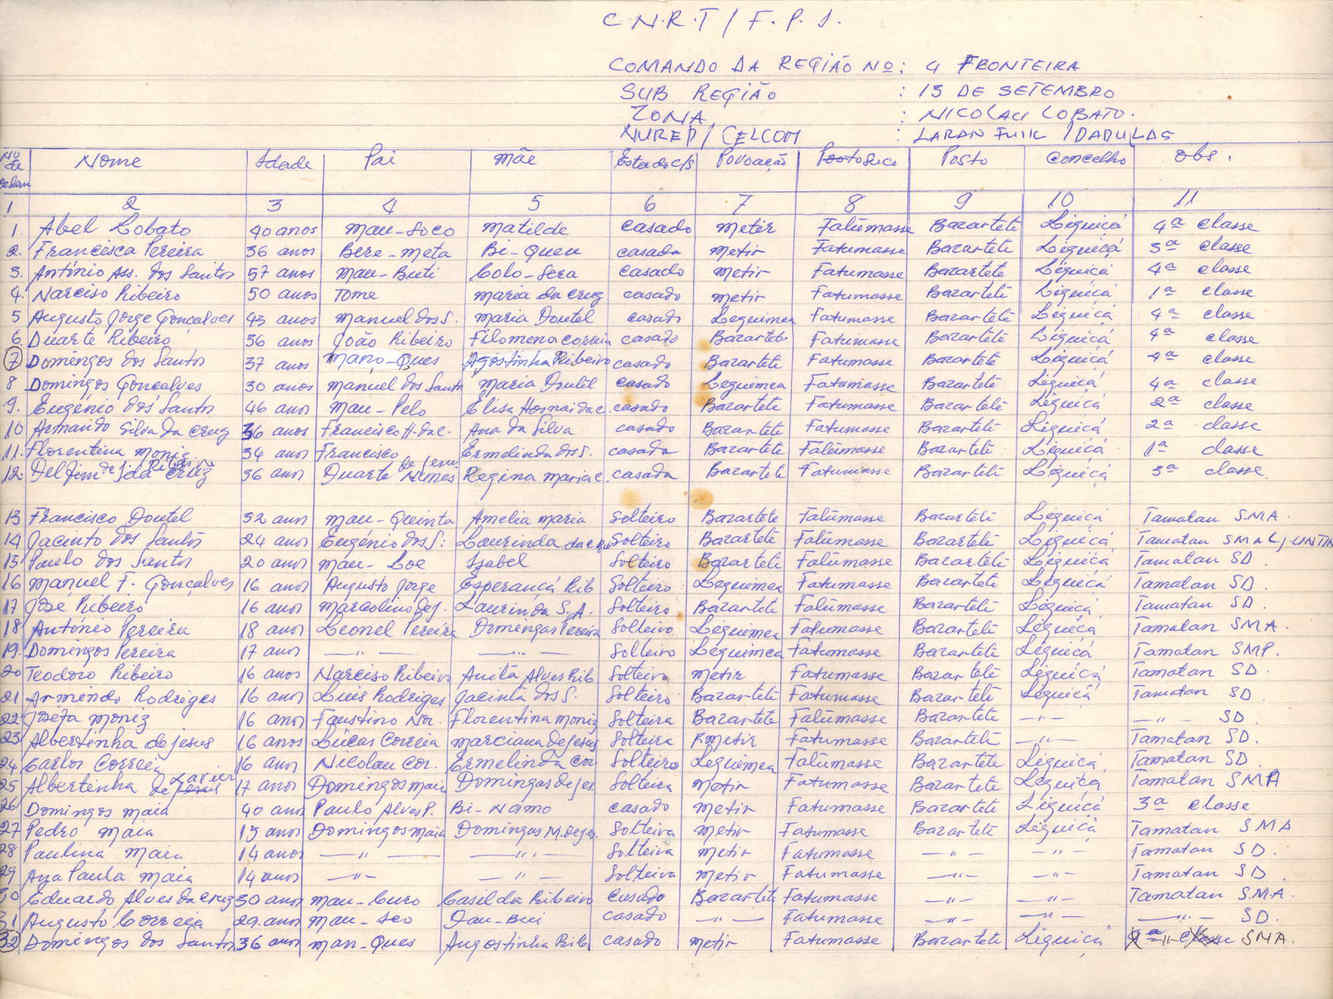 C.N.R.T / F.P.I.
COMANDO DA REGIÃO Nº : 4 FRONTEIRA
SUB REGIÃO : 15 DE SETEMBRO
ZONA : NICOLAU LOBATO.
NUREP / CELCOM : LARAN FUIK / DADULAS
Nº de ordem Nome Idade Pai Mãe Estado c/s Povoação Suco Posto Concelho Obs.
1 2 3 4 5 6 7 8 9 10 11
1. Abel Lobato 40 anos Mau-Soco Matilde casado Metir Fatumasse Bazartete Liquiçá 4ª classe
2. Francisca Pereira 36 anos Bere-Meta Bi-Queu casada Metir Fatumasse Bazartete Liquiçá 3ª classe
3. António Ass. dos Santos 57 anos Mau-Buti Colo-Sera casado Metir Fatumasse Bazartetê Liquiçá 4ª classe
4. Narciso Ribeiro 50 anos Tome Maria da Cruz casado Metir Fatumasse Bazartetê Liquiçá 1ª classe
5 Augusto Jorge Gonçalves 43 anos Manuel dos S. Maria Doutel casado Leguimea Fatumasse Bazartetê Liquiçá 4ª classe
6. Duarte Ribeiro 56 anos João Ribeiro Filomena Correia casado Bazartete Fatumasse Bazartetê Liquiçá 4ª classe
7 Domingos dos Santos 37 anos Mano-Ques Agostinha Ribeiro casado Bazartete Fatumasse Bazartetê Liquiçá 4ª classe
8 Domingos Gonçalves 30 anos Manuel dos Santos Maria Doutel casado Leguimea Fatumasse Bazartete Liquiçá 4ª classe
9. Eugénio dos Santos 46 anos Mau-Pelo Elisa casado Bazartete Fatumasse Bazartetê Liquiçá 2ª classe
10 Armando Silva da Cruz 36 anos Francisco H. da C. Ana da Silva casado Bazartete Fatumasse Bazartetê Liquiçá 2ª classe
11. Florentina Moniz 34 anos Francisco Ermelinda dos S. casada Bazartete Fatumasse Bazartetê Liquiçá 1ª classe
12. 36 anos Duarte Nunes de Jesus Regina Maria C. casada Bazartete Fatumasse Bazartetê Liquiçá 3ª classe
13 Francisco Doutel 52 anos Mau-Quinta Amelia Maria Solteiro Bazartete Fatumasse Bazartetê Liquiçá Tamatan SMA.
14 Jacinto dos Santos 24 anos Eugénio dos S: Laurinda da Solteiro Bazartete Fatumasse Bazartetê Liquiçá Tamatan
15 Paulo dos Santos 20 anos Mau-Loe Izabel Solteiro Bazartete Fatumasse Bazartetê Liquiçá Tamatan SD.
16 Manuel F. Gonçalves 16 anos Augusto Jorge Esperança Rib Solteiro Leguimea Fatumasse Bazartetê Liquiçá Tamatan SD.
17 José Ribeiro 16 anos Marcolino de J. Laurinda S.A. Solteiro Bazartete Fatumasse Bazartetê Liquiçá Tamatan SD.
18 António Pereira 18 anos Leonel Pereira Domingas Pereira Solteiro Leguimea Fatumasse Bazartetê Liquiçá Tamatan SMA.
19. Domingos Pereira 17 anos —"— —"— Solteiro Leguimea Fatumasse Bazartetê Liquiçá Tamatan SMP.
20 Teodoro Ribeiro 16 anos Narciso Ribeiro Anita Alves Rib Solteiro Metir Fatumasse Bazartetê Liquiçá Tamatan SD.
21 Armendo Rodriges 16 anos Luis Rodriges Jacinta dos S. Solteiro Bazartetê Fatumasse Bazartetê Liquiçá Tamatan SD.
22 Josefa Moniz 16 anos Faustino Florentina Moniz Solteira Bazartete Fatumasse Bazartete —"— —"— SD.
23 Albertinha de Jesus 16 anos Lucas Correia Marciana de Jesus Solteira Metir Fatumasse Bazartetê —"— Tamatan SD.
24 Carlos Correia 16 anos Nicolau Cor. Ermelinda Cor Solteiro Leguimea Fatumasse Bazartete Liquiçá Tamatan SD.
25 Albertenha de 17 anos Domingos Maia Domingas de Jes Solteira Metir Fatumasse Bazartete Liquiçá Tamatan SMA
26 Domingos Maia 40 anos Paulo Alves P. Bi-Namo casado Metir Fatumasse Bazartete Liquiçá 3ª classe
27 Pedro Maia 19 anos Domingos Maia Domingas M. de Jes. Solteiro Metir Fatumasse Bazartetê Liquiçá Tamatan SMA
28 Paulina Maia 14 anos —"— —"— Solteira Metir Fatumasse —"— —"— Tamatan SD.
29 Ana Paula Maia 14 anos —"— —"— Solteira Metir Fatumasse —"— —"— Tamatan SD.
30 Eduardo Alves da Cruz 30 anos Mau-Curo Casilda Ribeiro Casado Bazartete Fatumasse —"— —"— Tamatan SMA.
31 Augusto Correia 29 anos Mau-Seo Dau-Bui casado —"— Fatumasse —"— —"— —"— SD.
32 Domingos dos Santos 36 anos Man-Ques Augostinha Rib casado Metir Fatumasse Bazartetê Liquiçá SMA.